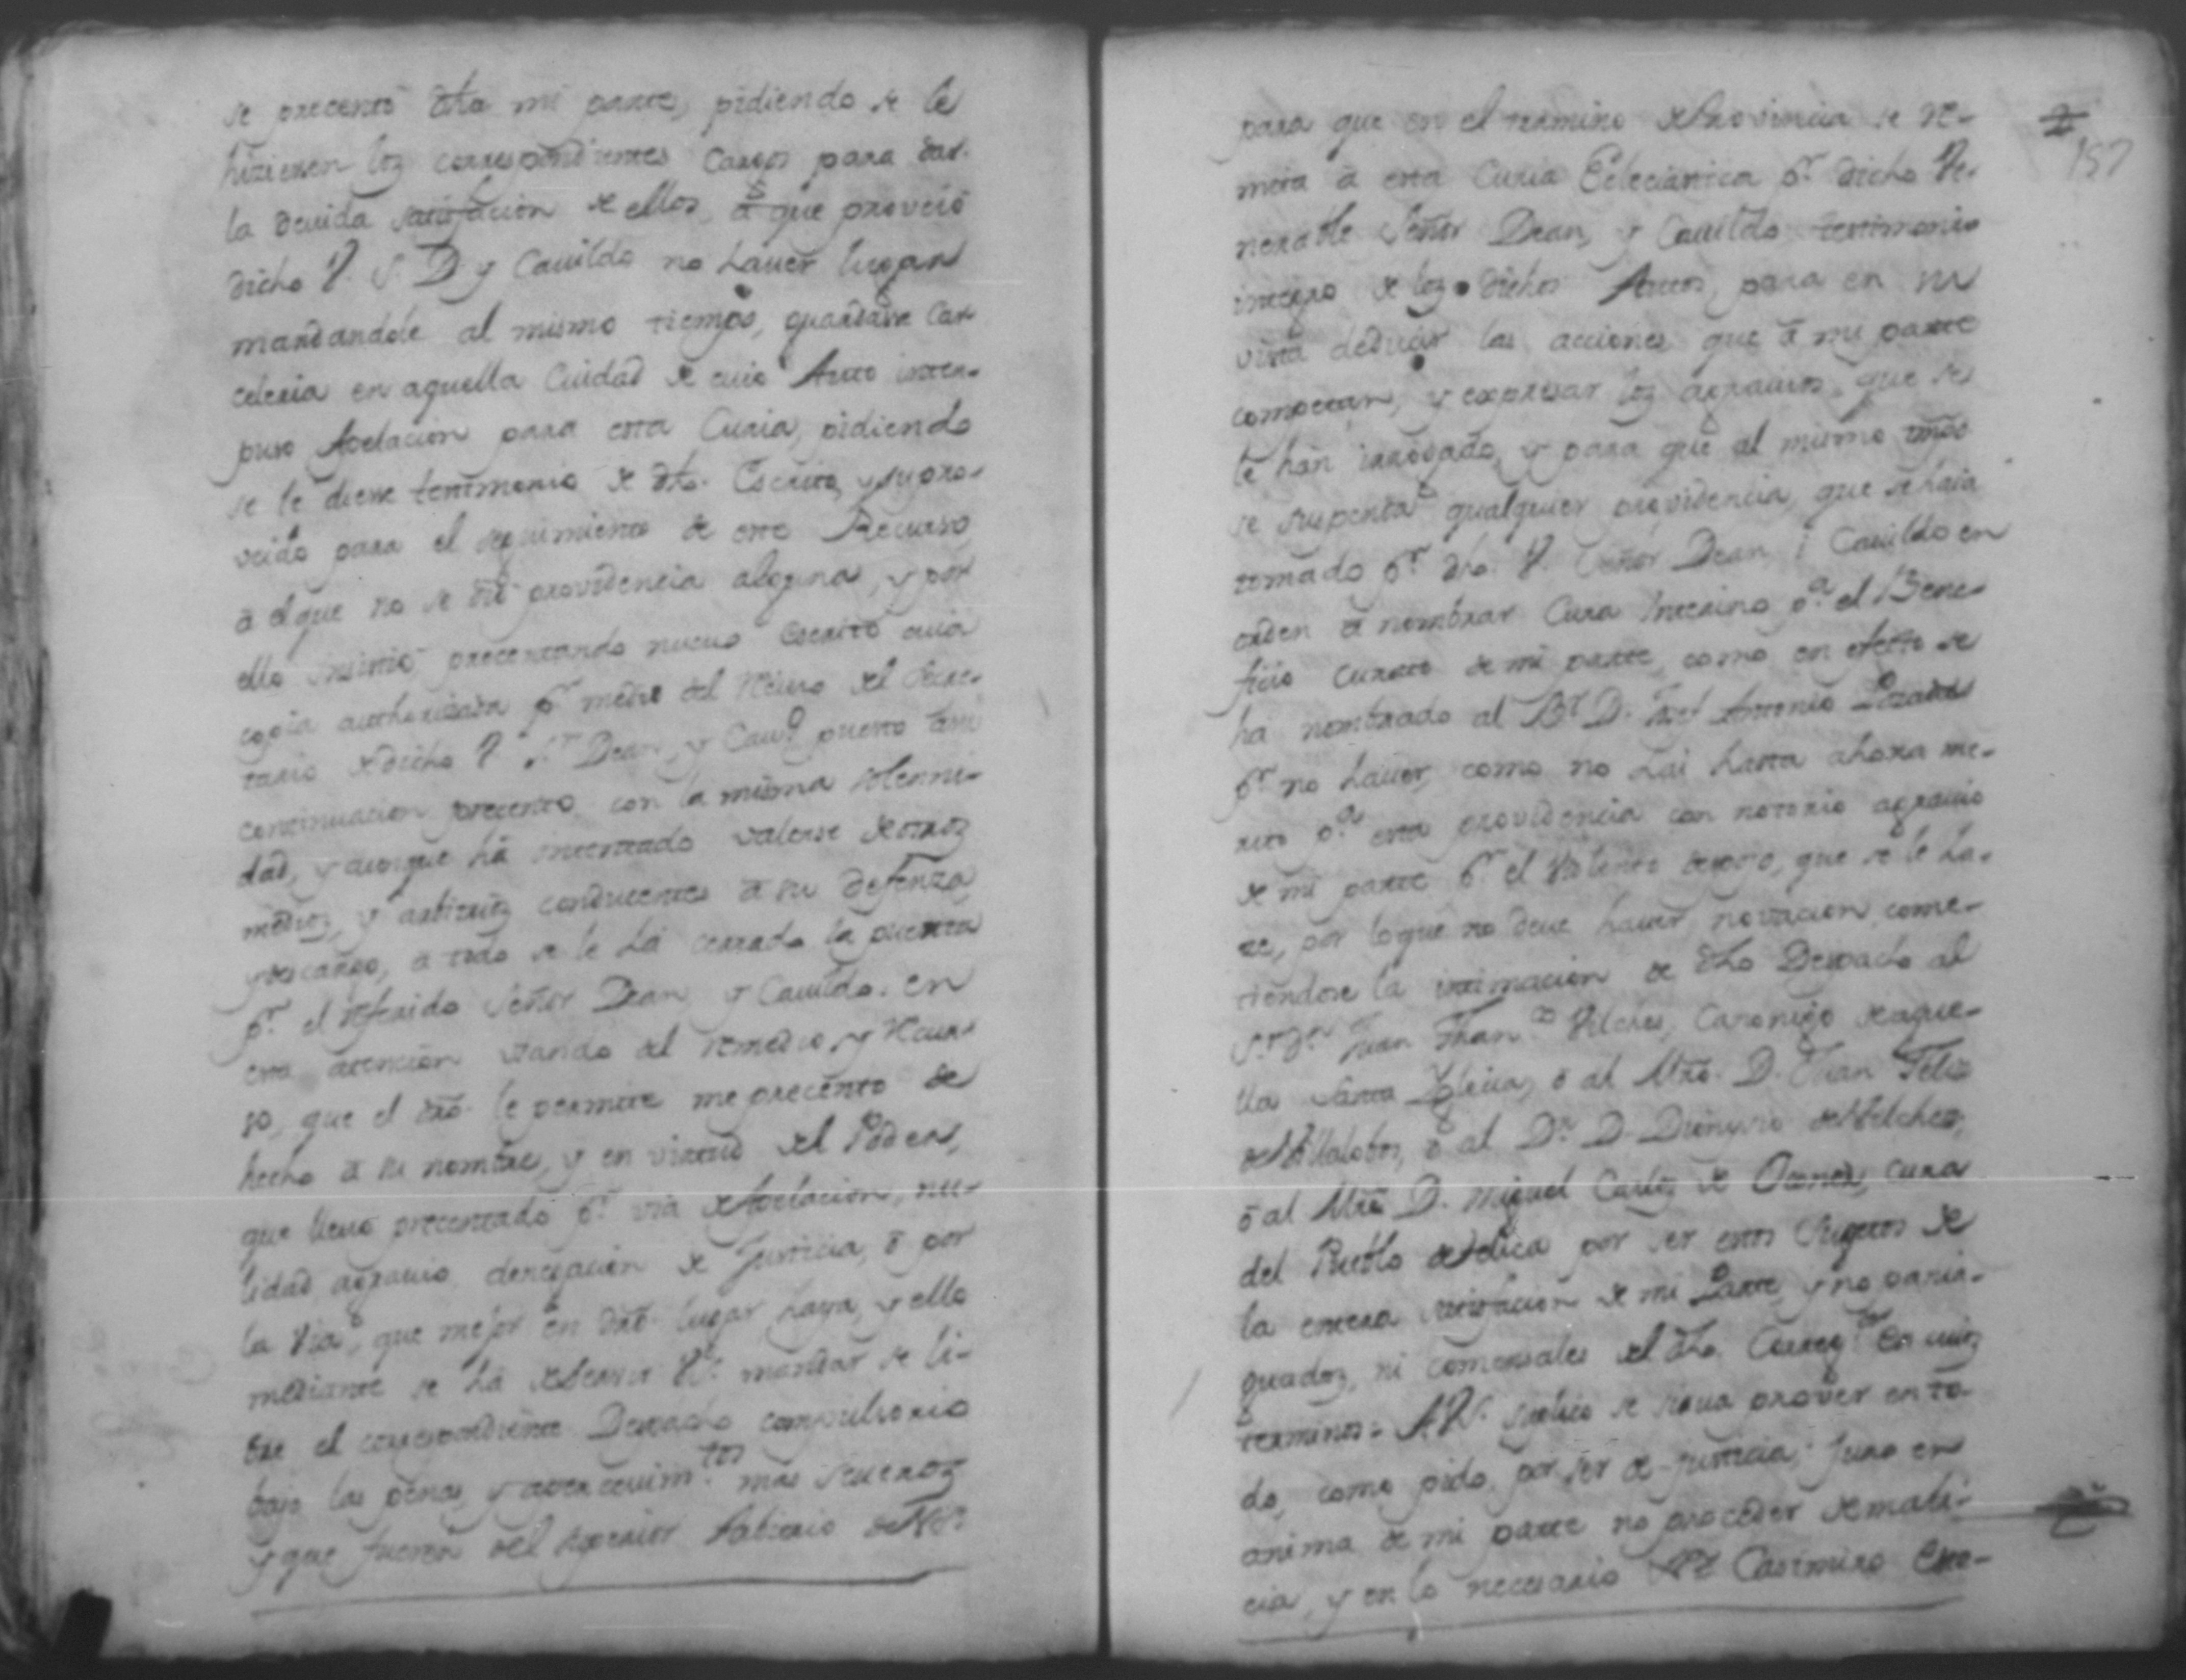 se precentó dho mi parte, pidiendo se le
hiziesen loz correspondientes cargos para dar
la devida satisfacion de ellos, á que proveió
dicho V. S. D. y Cavildo no haver lugar
mandandole al mismo tiempo, guardase Car
celeria en aquella Ciudad de cuio Auto inter-
puso Apelacion para esta Curia, pidiendo
se le diese testimonio de dho. Escrito, y su pro-
veido para el seguimiento de este Recurso
á el que no se dió providencia alguna, y por
ello insistió precentando nuevo escrito cuia
copia authorizada pr. medio del Notario del Secre-
tario de dicho V. Sr. Dean, y Cavdo. puesto a su
continuacion precento con la misma solemni-
dad, y aunque há intentado valerse de otroz
medioz, y arbitrioz conducentes á su defenza,
y descargo, á todo se le há cerrado la puerta
pr. el referido Señor Dean, y Cavildo. en
esta atencion usando del remedio, y recur-
so, que el dro. le permite me precento de
hecho á su nombre, y en virtud del Poder,
que llevo precentado pr. via de Apelacion, nu-
lidad, agravio, denegacion de Justicia, ó por
la via, que mejor en dro. lugar haya, y ello
mediante se há de servir VS. mandar se li-
bre el correspondiente Despacho compulsorio
bajo las penas, y apercevimtos. mas severoz
y que fueren del superior Arbitrio de VS.
2
187
para que en el termino de Provincia se re-
mita á esta Curia Eclesiastica pr. dicho Ve-
nerable Señor Dean, y Cavildo testimonio
integro de loz dichos Autos, para en su
vista deducir las acciones, que á mi parte
competan, y expresar loz agravios, que se
le han irrogado, y para que al mismo tmpo.
se suspenda qualquier providencia, que se haia
tomado pr. dho. V. Señor Dean, i Cavildo en
orden á nombrar Cura Interino pa. el Bene-
ficio Curato de mi parte, como en efecto se
ha nombrado al Br. D. Josef Antonio Lozada
pr. no haver, como no hai hasta ahora me-
rito pa. esta providencia con notorio agravio
de mi parte pr. el violento despojo, que se le ha-
ze, por lo que no deve haver novacion, come-
tiendose la intimacion de dho Despacho al
Sr. Dr. Juan Franco. Vilches, Canonigo de aque-
lla Santa Iglecia, ó al Mro. D. Juan Feliz
de Villalobos, ó al Dr. D. Dionycio de Vilches,
ó al Mro. D. Miguel Carlos de Osines, Cura
del Pueblo de Velica por ser estos sugetos de
la entera satisfacion de mi Parte, y no pania-
guadoz, ni comensales del dho. Correxor. En cuioz
terminos = A VS. suplico se sirva prover en to-
do, como pido, por ser de justicia: Juro en
anima de mi parte no proceder de mali-
cia, y en lo necesario Va. Casimiro Esco-